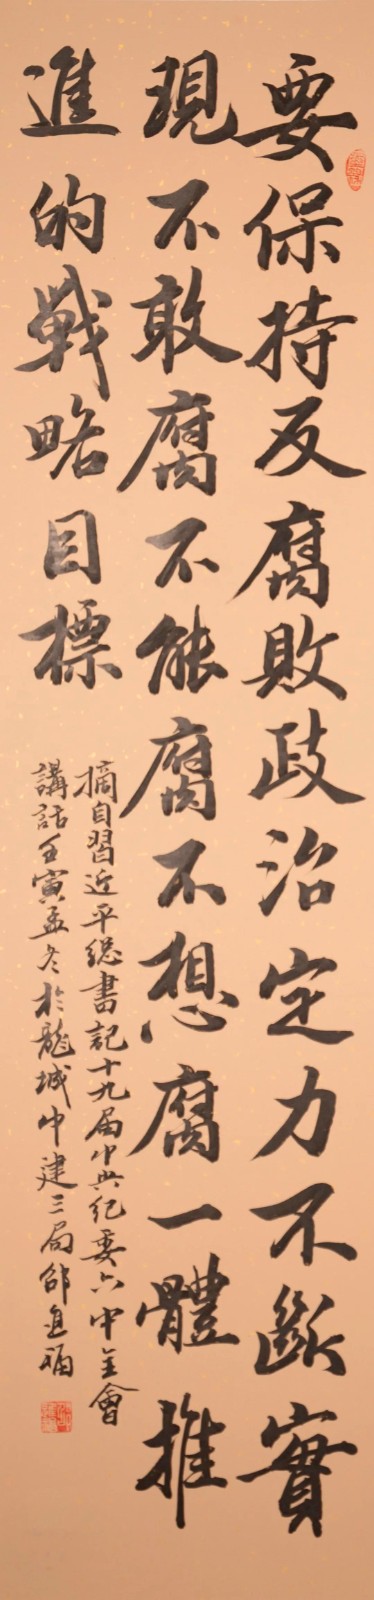 要保持反腐敗政治定力不斷實
現不敢腐不能腐不想腐一體推
進的戰略目標
摘自習近平總書記十九屆中央紀委六中全會
講話壬寅孟冬於龍城中建三局邵